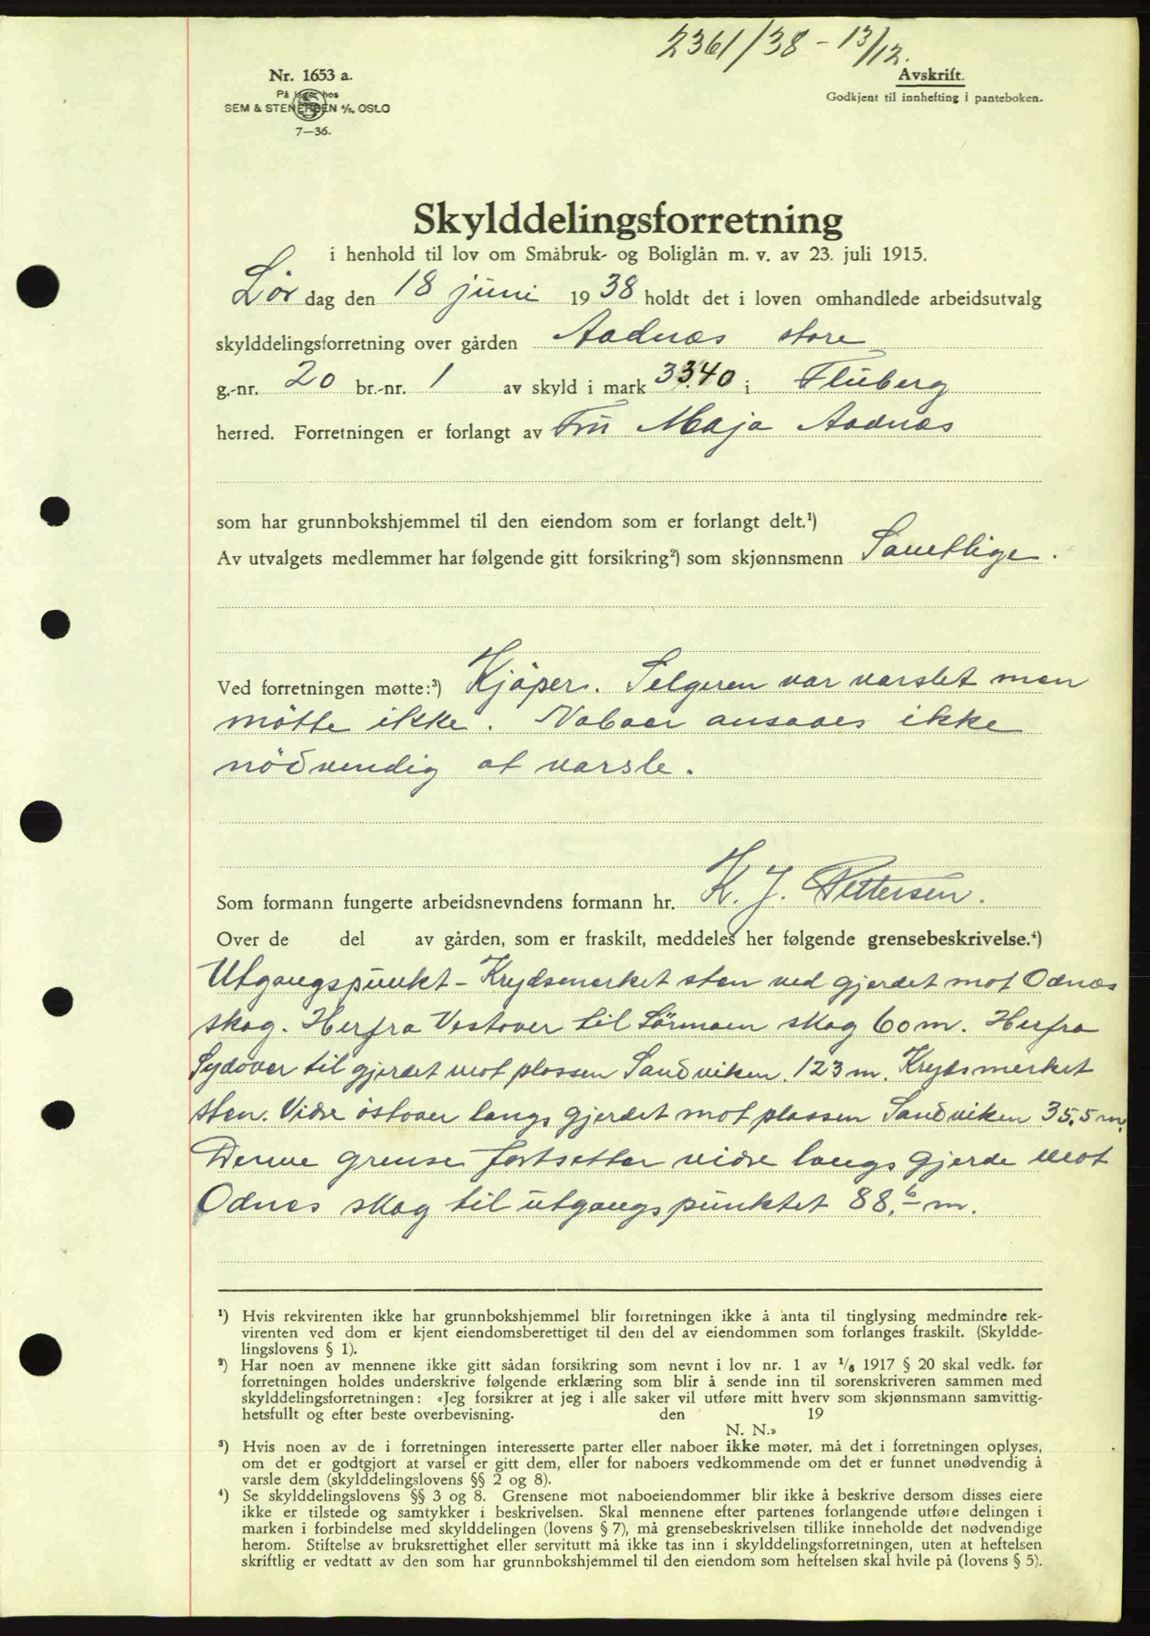 2361/38 - 13/12.
Nr. 1653 a.
På lager hos
SEM & STENERSEN A/S, OSLO
7—36.
Avskrift.
Godkjent til innhefting i panteboken.
Skylddelingsforretning
i henhold til lov om Småbruk- og Boliglån m. v. av 23. juli 1915.
Lör dag den 18 juni 1938 holdt det i loven omhandlede arbeidsutvalg
skylddelingsforretning over gården Aadnæs store
g.-nr. 20 br.-nr. 1 av skyld i mark 33.40 i Fluberg
herred. Forretningen er forlangt av Fru Maja Aadnæs
som har grunnbokshjemmel til den eiendom som er forlangt delt.¹)
Av utvalgets medlemmer har følgende gitt forsikring²) som skjønnsmenn Samtlige.
Ved forretningen møtte:³) Kjöper. Selgeren var varslet men
mötte ikke. Naboer ansaaes ikke
nödvendig at varsle.
Som formann fungerte arbeidsnevndens formann hr. K. J. Pettersen.
Over de del av gården, som er fraskilt, meddeles her følgende grensebeskrivelse.⁴)
Utgangspunkt - Krydsmerket sten ved gjerdet mot Odnæs
skog. Herfra Vestover til Sörmoen skog 60 m. Herfra
Sydover til gjerdet mot plassen Sandviken. 123 m. Krydsmerket
sten. Vidre östover langs gjerdet mot plassen Sandviken 35,5 m.
Denne grense fortsetter vidre langs gjerde mot
Odnæs skog til utgangspunktet 88,6 m.
¹) Hvis rekvirenten ikke har grunnbokshjemmel blir forretningen ikke å anta til tinglysing medmindre rek-
virenten ved dom er kjent eiendomsberettiget til den del av eiendommen som forlanges fraskilt. (Skyldde-
lingslovens § 1).
²) Har noen av mennene ikke gitt sådan forsikring som nevnt i lov nr. 1 av 1/6 1917 § 20 skal vedk. før
forretningen holdes underskrive følgende erklæring som blir å sende inn til sorenskriveren sammen med
skylddelingsforretningen: «Jeg forsikrer at jeg i alle saker vil utføre mitt hverv som skjønnsmann samvittig-
hetsfullt og efter beste overbevisning. den 19
N. N.»
³) Hvis noen av de i forretningen interesserte parter eller naboer ikke møter, må det i forretningen oplyses,
om det er godtgjort at varsel er gitt dem, eller for naboers vedkommende om det er funnet unødvendig å
varsle dem (skylddelingslovens §§ 2 og 8).
⁴) Se skylddelingslovens §§ 3 og 8. Grensene mot naboeiendommer blir ikke å beskrive dersom disses eiere
ikke er tilstede og samtykker i beskrivelsen. Skal mennene efter partenes forlangende utføre delingen i
marken i forbindelse med skylddelingen (lovens § 7), må grensebeskrivelsen tillike inneholde det nødvendige
herom. Stiftelse av bruksrettighet eller servitutt må ikke tas inn i skylddelingsforretningen, uten at heftelsen
skriftlig er vedtatt av den som har grunnbokshjemmel til den eiendom som heftelsen skal hvile på (lovens § 5).